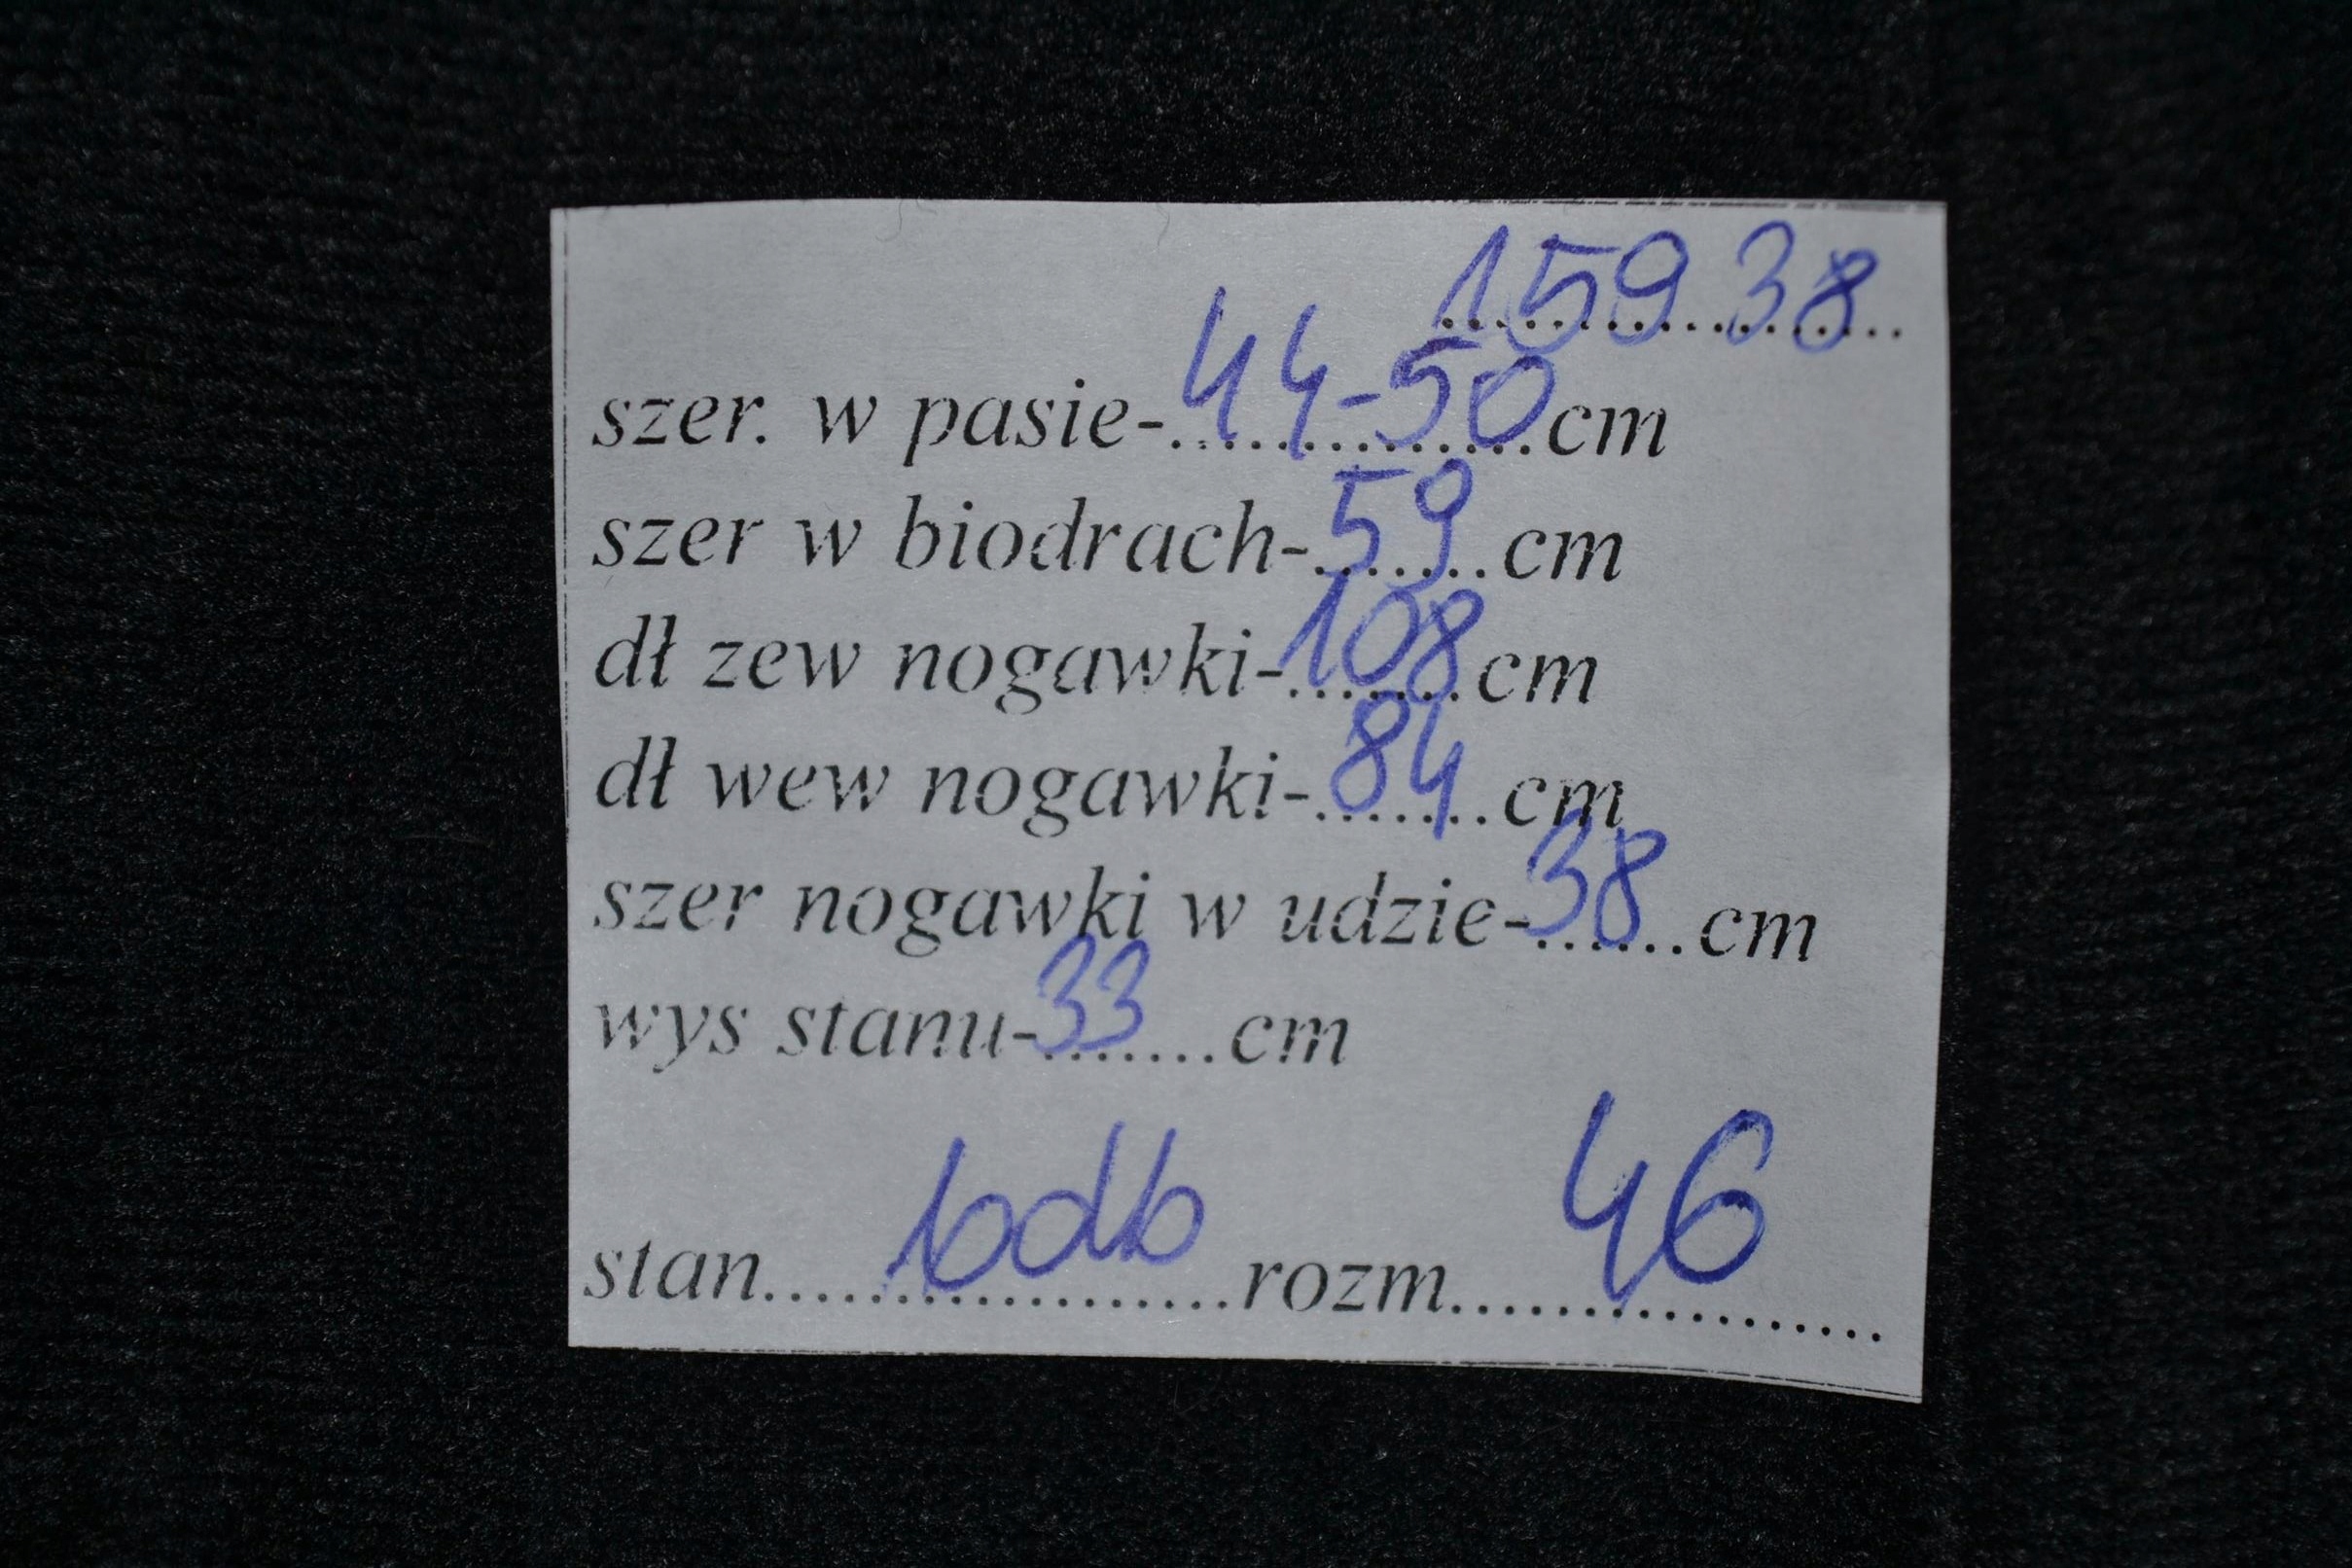 159 38
szer. w pasie-44-50cm
szer w biodrach-59cm
dł zew nogawki-108cm
dł wew nogawki-84cm
szer nogawki w udzie-38cm
wys stanu-33cm
stan bdb rozm 46